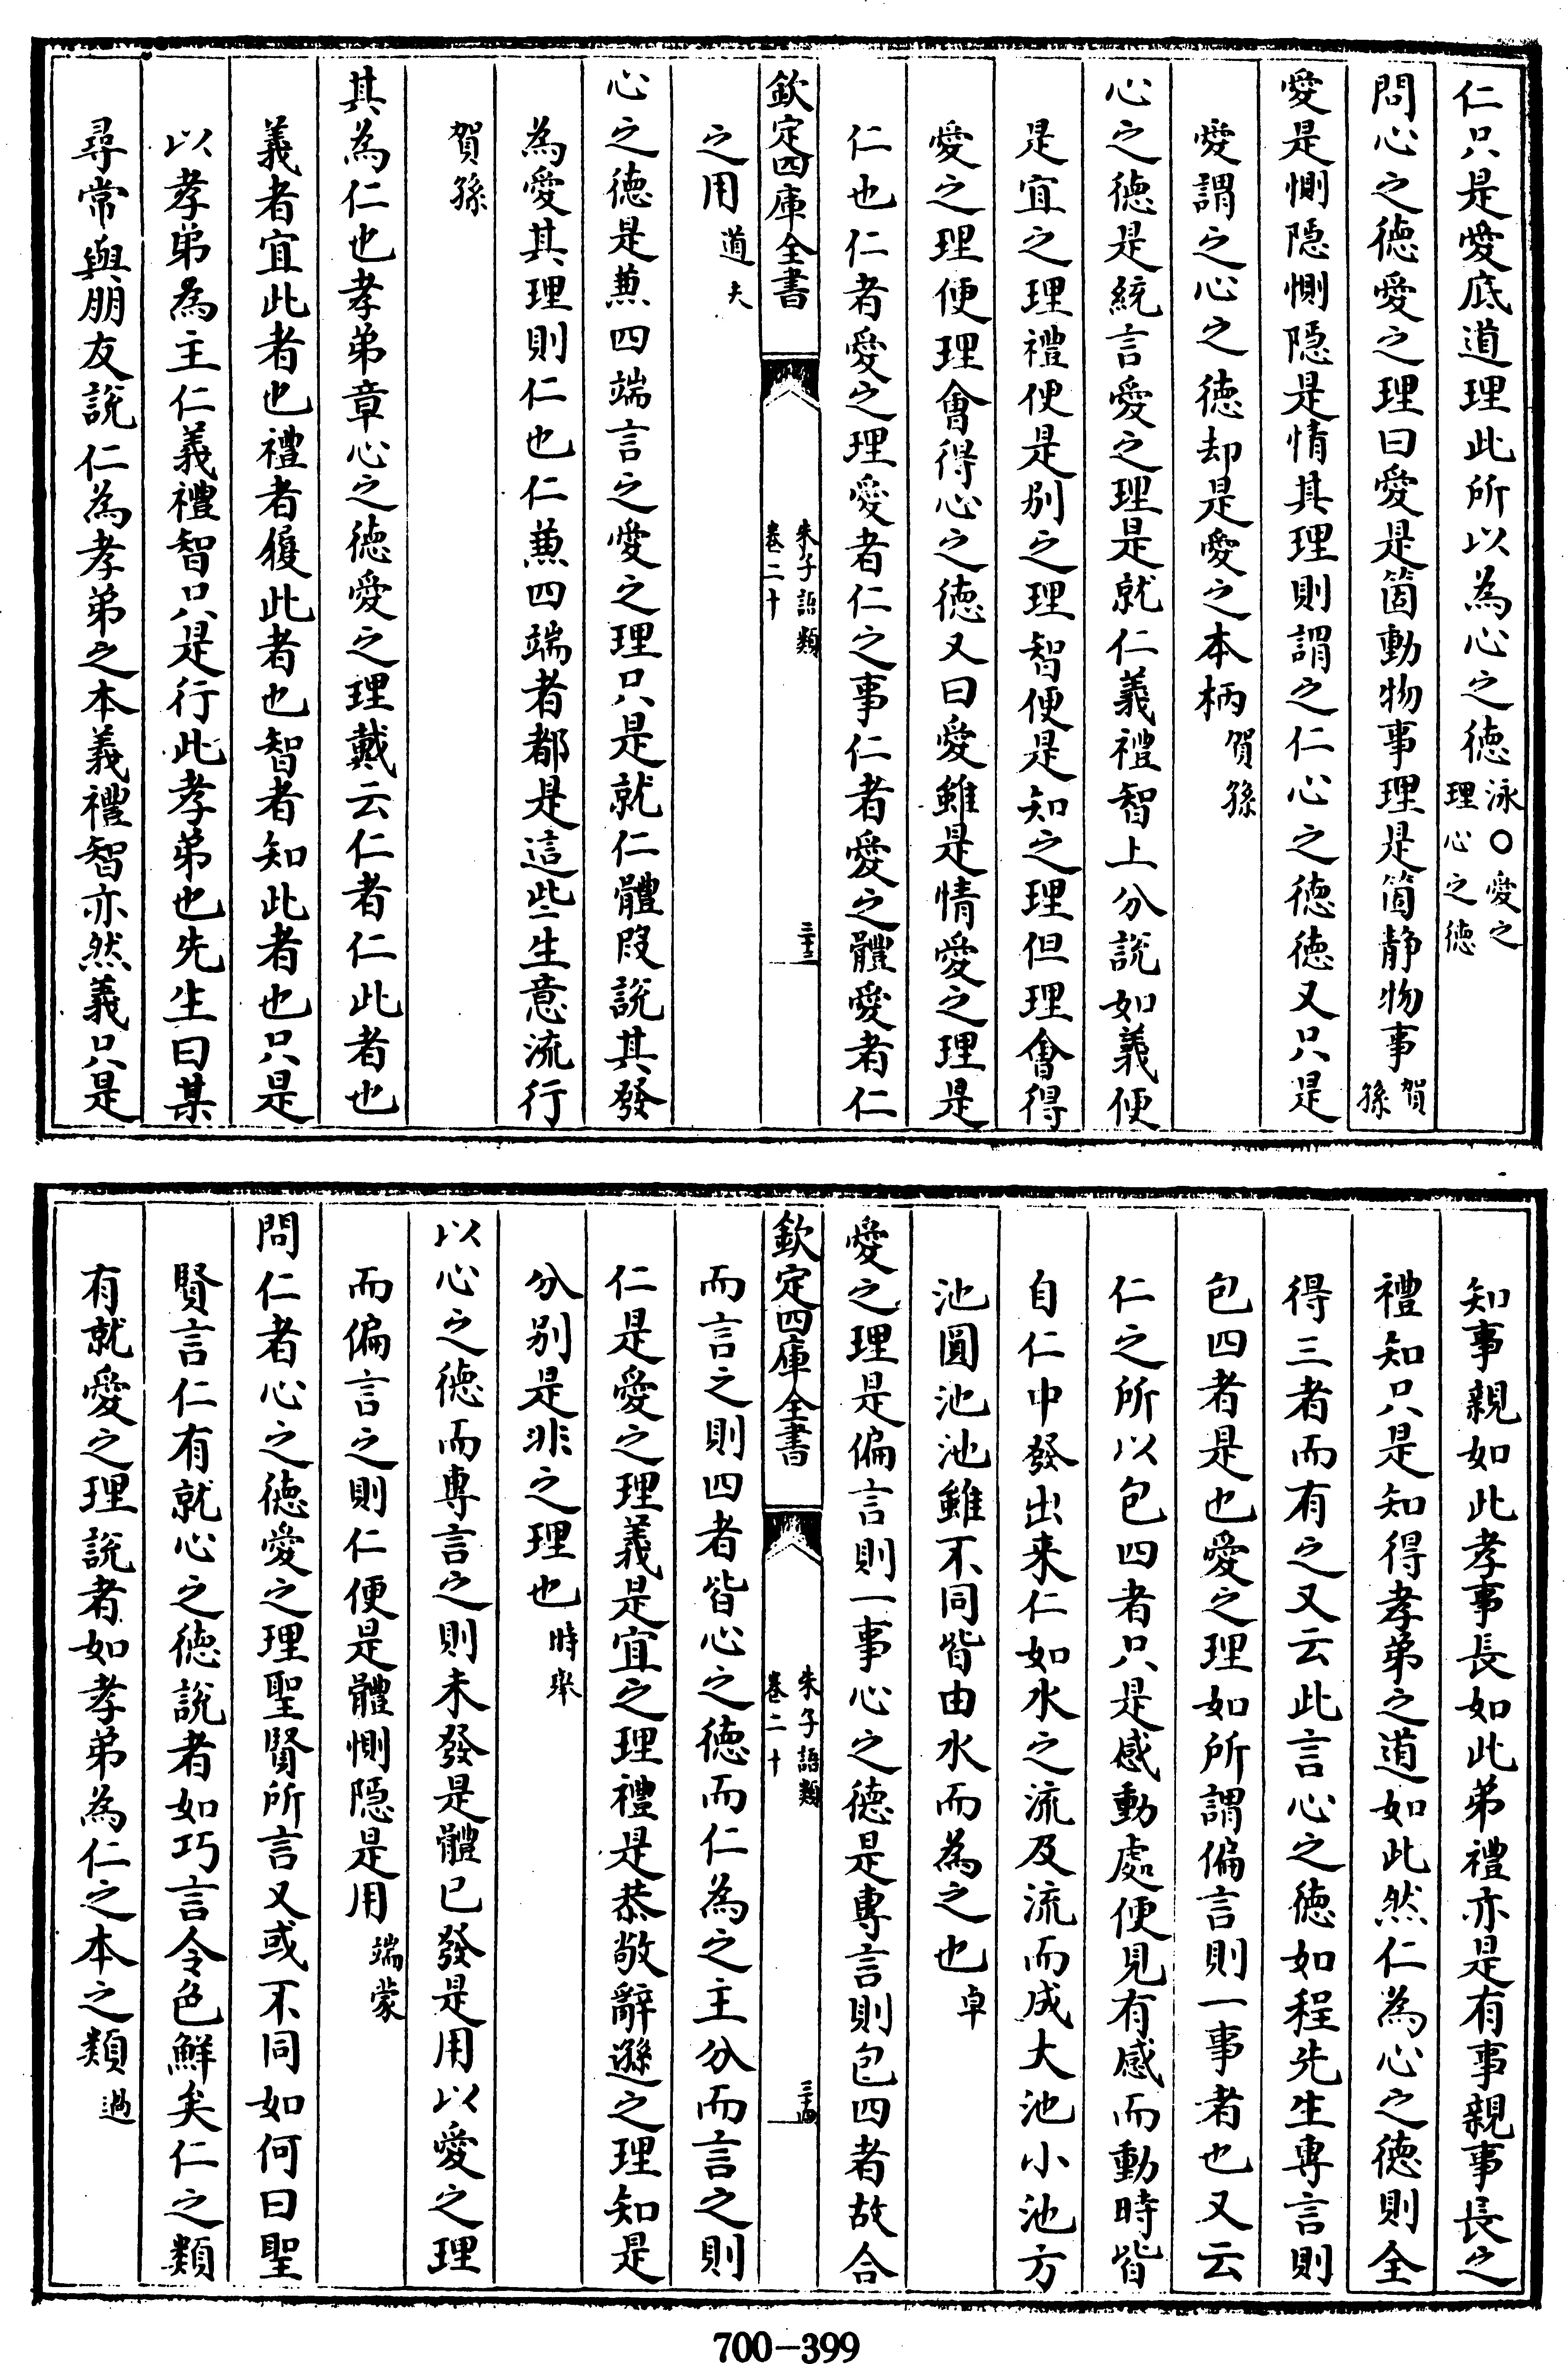 仁只是愛底道理此所以為心之徳泳○愛之理心之徳
問心之徳愛之理曰愛是箇動物事理是箇静物事賀孫
愛是惻隠惻隠是情其理則謂之仁心之徳徳又只是
愛謂之心之徳却是愛之本柄賀孫
心之徳是統言愛之理是就仁義禮智上分説如義便
是宜之理禮便是别之理智便是知之理但理會得
愛之理便理會得心之徳又曰愛雖是情愛之理是
仁也仁者愛之理愛者仁之事仁者愛之體愛者仁
欽定四庫全書
朱子語類
卷二十
三十三
之用道夫
心之徳是兼四端言之愛之理只是就仁體叚説其發
為愛其理則仁也仁兼四端者都是這些生意流行
賀孫
其為仁也孝弟章心之徳愛之理戴云仁者仁此者也
義者宜此者也禮者履此者也智者知此者也只是
以孝弟為主仁義禮智只是行此孝弟也先生曰某
尋常與朋友説仁為孝弟之本義禮智亦然義只是
知事親如此孝事長如此弟禮亦是有事親事長之
禮知只是知得孝弟之道如此然仁為心之徳則全
得三者而有之又云此言心之徳如程先生専言則
包四者是也愛之理如所謂偏言則一事者也又云
仁之所以包四者只是感動處便見有感而動時皆
自仁中發出来仁如水之流及流而成大池小池方
池圓池池雖不同皆由水而為之也卓
愛之理是偏言則一事心之徳是専言則包四者故合
欽定四庫全書
朱子語類
卷二十
三十四
而言之則四者皆心之徳而仁為之主分而言之則
仁是愛之理義是宜之理禮是恭敬辭遜之理知是
分别是非之理也時舉
以心之徳而専言之則未發是體已發是用以愛之理
而偏言之則仁便是體惻隠是用端蒙
問仁者心之徳愛之理聖賢所言又或不同如何曰聖
賢言仁有就心之徳説者如巧言令色鮮矣仁之類
有就愛之理説者如孝弟為仁之本之類過
700-399